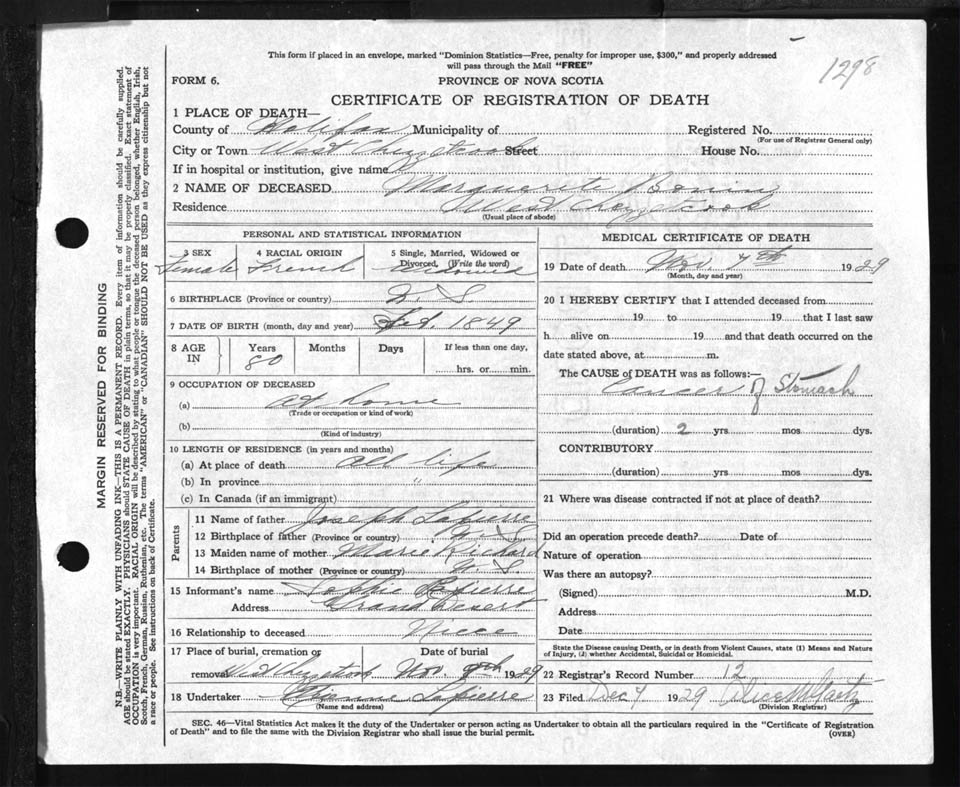 This form if placed in an envelope, marked "Dominion Statistics—Free, penalty for improper use, $300," and properly addressed
will pass through the Mail "FREE"
1298
FORM 6.
PROVINCE OF NOVA SCOTIA
CERTIFICATE OF REGISTRATION OF DEATH
1 PLACE OF DEATH—
County of Halifax Municipality of Registered No.
(For use of Registrar General only)
City or Town West Chezzetcook Street House No.
If in hospital or institution, give name
2 NAME OF DECEASED Marguerite Bonin
Residence West Chezzetcook
(Usual place of abode)
PERSONAL AND STATISTICAL INFORMATION
3 SEX 4 RACIAL ORIGIN 5 Single, Married, Widowed or
Divorced, (Write the word)
Female French Widowed
6 BIRTHPLACE (Province or country) N. S.
7 DATE OF BIRTH (month, day and year) 1849
8 AGE IN Years Months Days If less than one day,
80 hrs. or min.
9 OCCUPATION OF DECEASED
(a) At home
(Trade or occupation or kind of work)
(b)
(Kind of industry)
10 LENGTH OF RESIDENCE (in years and months)
(a) At place of death all life
(b) In province "
(c) In Canada (if an immigrant)
Parents
11 Name of father Joseph Lapierre
12 Birthplace of father (Province or country) N. S
13 Maiden name of mother Marie Richard
14 Birthplace of mother (Province or country) N. S
15 Informant's name Lapierre
Address Grand Desert
16 Relationship to deceased Niece
17 Place of burial, cremation or Date of burial
removal West Chezzetcook Nov. 9th 1929
18 Undertaker Lapierre
(Name and address)
MEDICAL CERTIFICATE OF DEATH
19 Date of death Nov. 7th 1929
(Month, day and year)
20 I HEREBY CERTIFY that I attended deceased from
19 to 19 that I last saw
h alive on 19 and that death occurred on the
date stated above, at m.
The CAUSE of DEATH was as follows:—
Cancer of Stomach
(duration) 2 yrs mos dys.
CONTRIBUTORY
(duration) yrs mos dys.
21 Where was disease contracted if not at place of death?
Did an operation precede death? Date of
Nature of operation
Was there an autopsy?
(Signed) M.D.
Address
Date
State the Disease causing Death, or in death from Violent Causes, state (1) Means and Nature
of Injury, (2) whether Accidental, Suicidal or Homicidal.
22 Registrar's Record Number 12
23 Filed Dec 4 1929 Alice
(Division Registrar)
SEC. 46—Vital Statistics Act makes it the duty of the Undertaker or person acting as Undertaker to obtain all the particulars required in the "Certificate of Registration
of Death" and to file the same with the Division Registrar who shall issue the burial permit. (OVER)
MARGIN RESERVED FOR BINDING
N.B.—WRITE PLAINLY WITH UNFADING INK—THIS IS A PERMANENT RECORD. Every item of information should be carefully supplied.
AGE should be stated EXACTLY. PHYSICIANS should STATE CAUSE OF DEATH in plain terms, so that it may be properly classified. Exact statement of
OCCUPATION is very important. RACIAL ORIGIN will be described by stating to what people or tongue the deceased person belonged, whether English, Irish,
Scotch, French, German, Russian, Ruthenian, etc. The terms "AMERICAN" or "CANADIAN" SHOULD NOT BE USED as they express citizenship but not
a race or people. See instructions on back of Certificate.